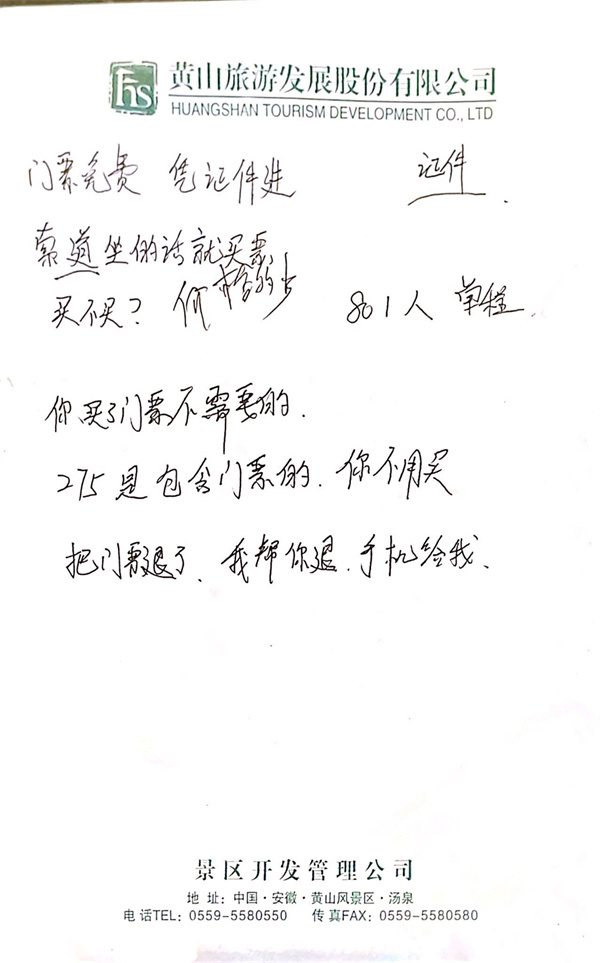 hs
黄山旅游发展股份有限公司
HUANGSHAN TOURISM DEVELOPMENT CO., LTD
门票免费 凭证件进 证件
索道坐的话就买票
买不买? 80 1人 单程.
你买了门票不需要的.
275是包含门票的. 你不用买
把门票退了. 我帮你退. 手机给我.
景区开发管理公司
地 址: 中国·安徽·黄山风景区·汤泉
电 话TEL: 0559-5580550 传 真FAX: 0559-5580580